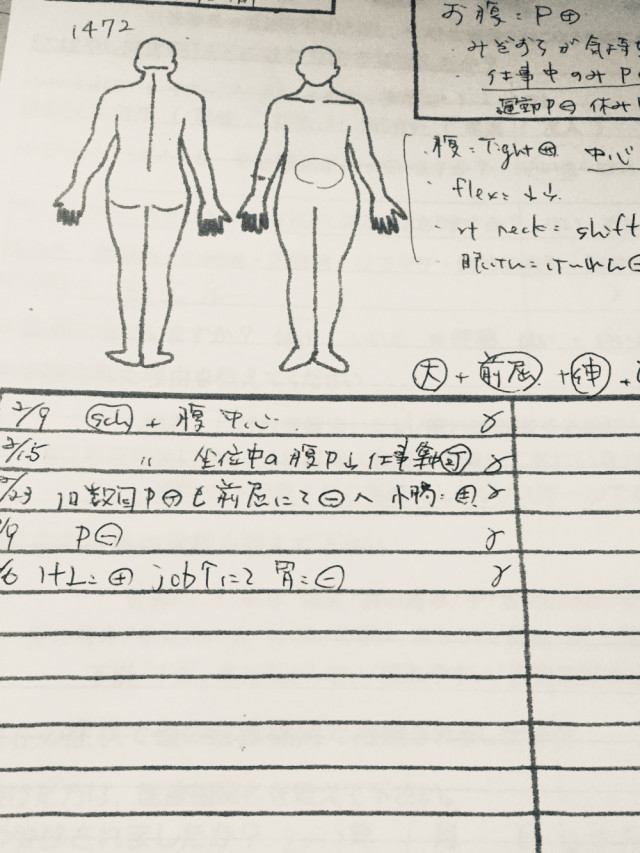 1472
お腹：P⊕
・みぞおちが気持
・仕事中のみP
運動P⊖ 休み
・腹：Tight⊕ 中心
・flex：↓↓
・rt neck：shift
大 + 前屈 + 伸 +
2/9 sch + 腹 中心
2/15 〃 坐位中の腹P↓ 仕事
2/23 1日数回P⊕も前屈にて⊖へ 小腸：
/9 P⊖
/6 ⊕ job↑にて 胃：⊖